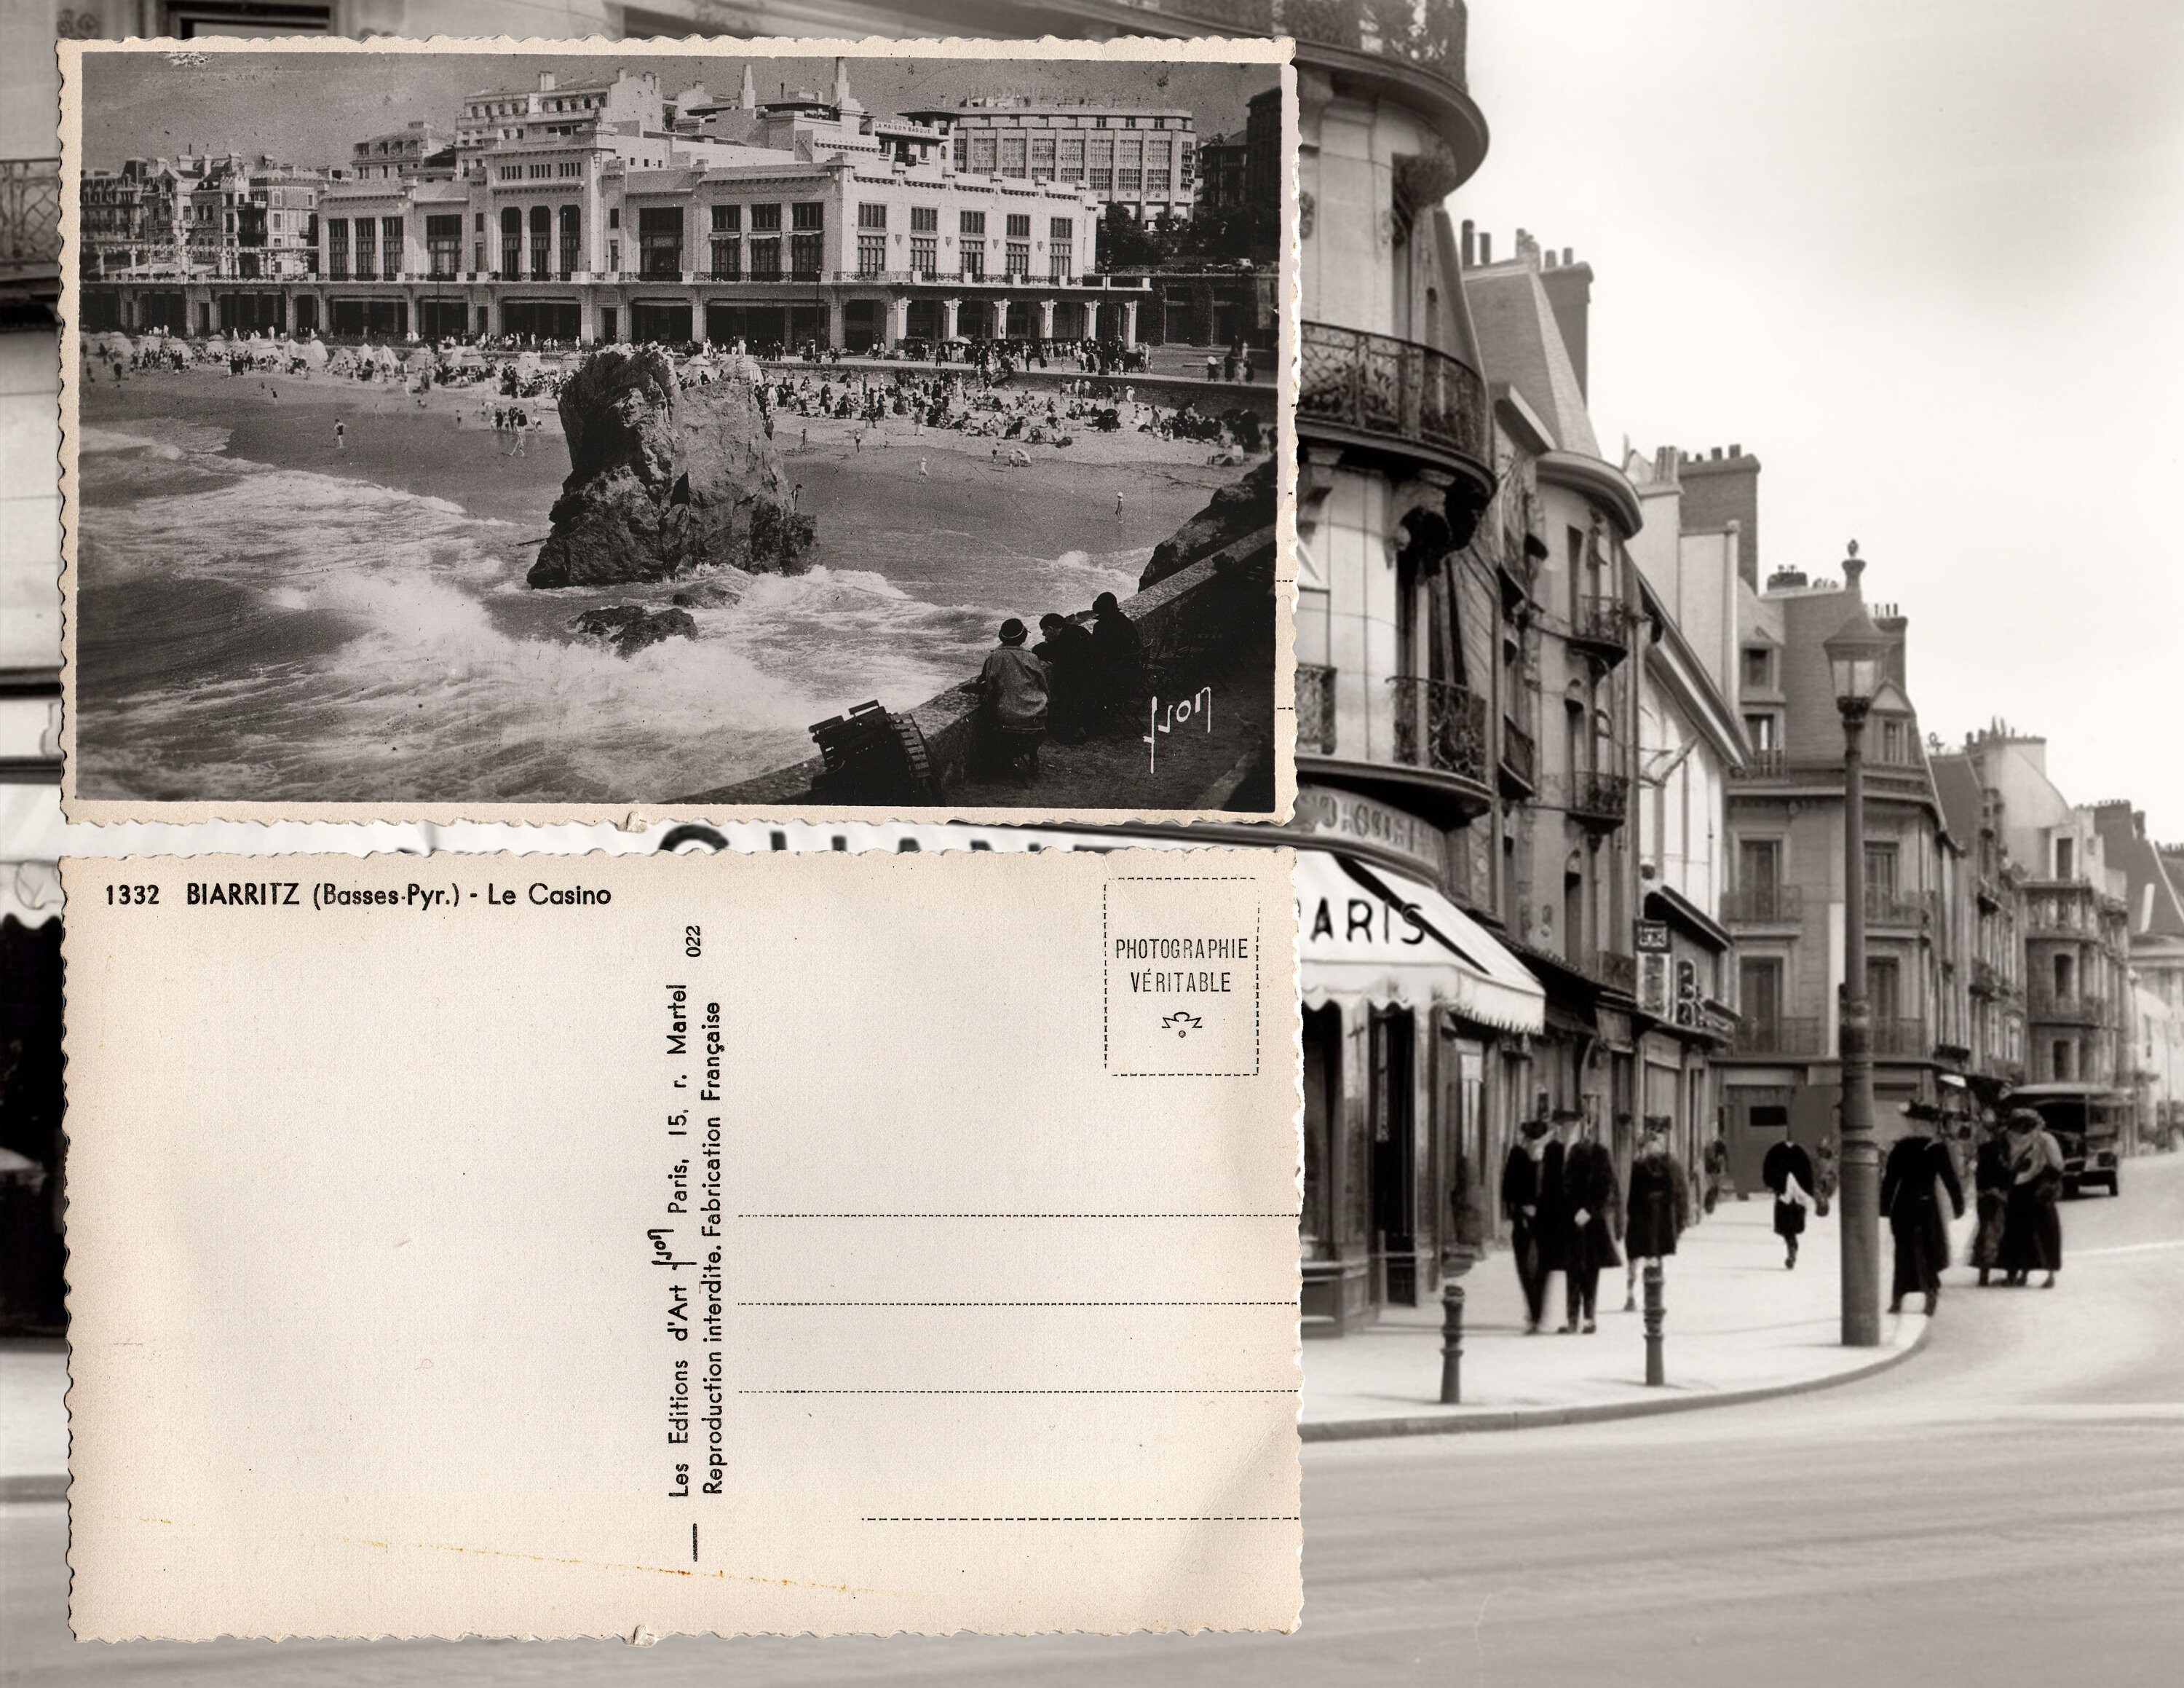 LA MAISON BASQUE
yvon
1332 BIARRITZ (Basses-Pyr.) - Le Casino
PHOTOGRAPHIE
VÉRITABLE
Les Editions d'Art yvon Paris, 15, r. Martel 022
Reproduction interdite. Fabrication Française
PARIS